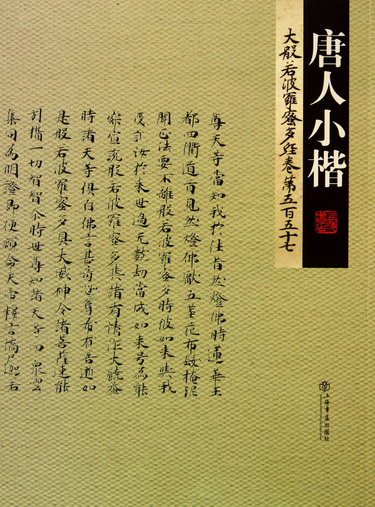 唐人小楷
大般若波羅蜜多經卷第五百五十七
尊天等當知我於往昔然燈佛時蓮華王
都四衢道首見然燈佛獻五莖花布髮掩泥
聞正法要不離般若波羅蜜多時彼如來我
汝於來世過無數劫當成如來号為能
寂宣說般若波羅蜜多諸有情大饒益
時諸天等俱白佛言甚奇世尊希有善逝如
是般若波羅蜜多具大威神令諸菩薩速能
引攝一切智智尒時世尊知諸天等四眾雲
集同為明證即便顧命天帝釋言憍尸迦若
上海書店出版社